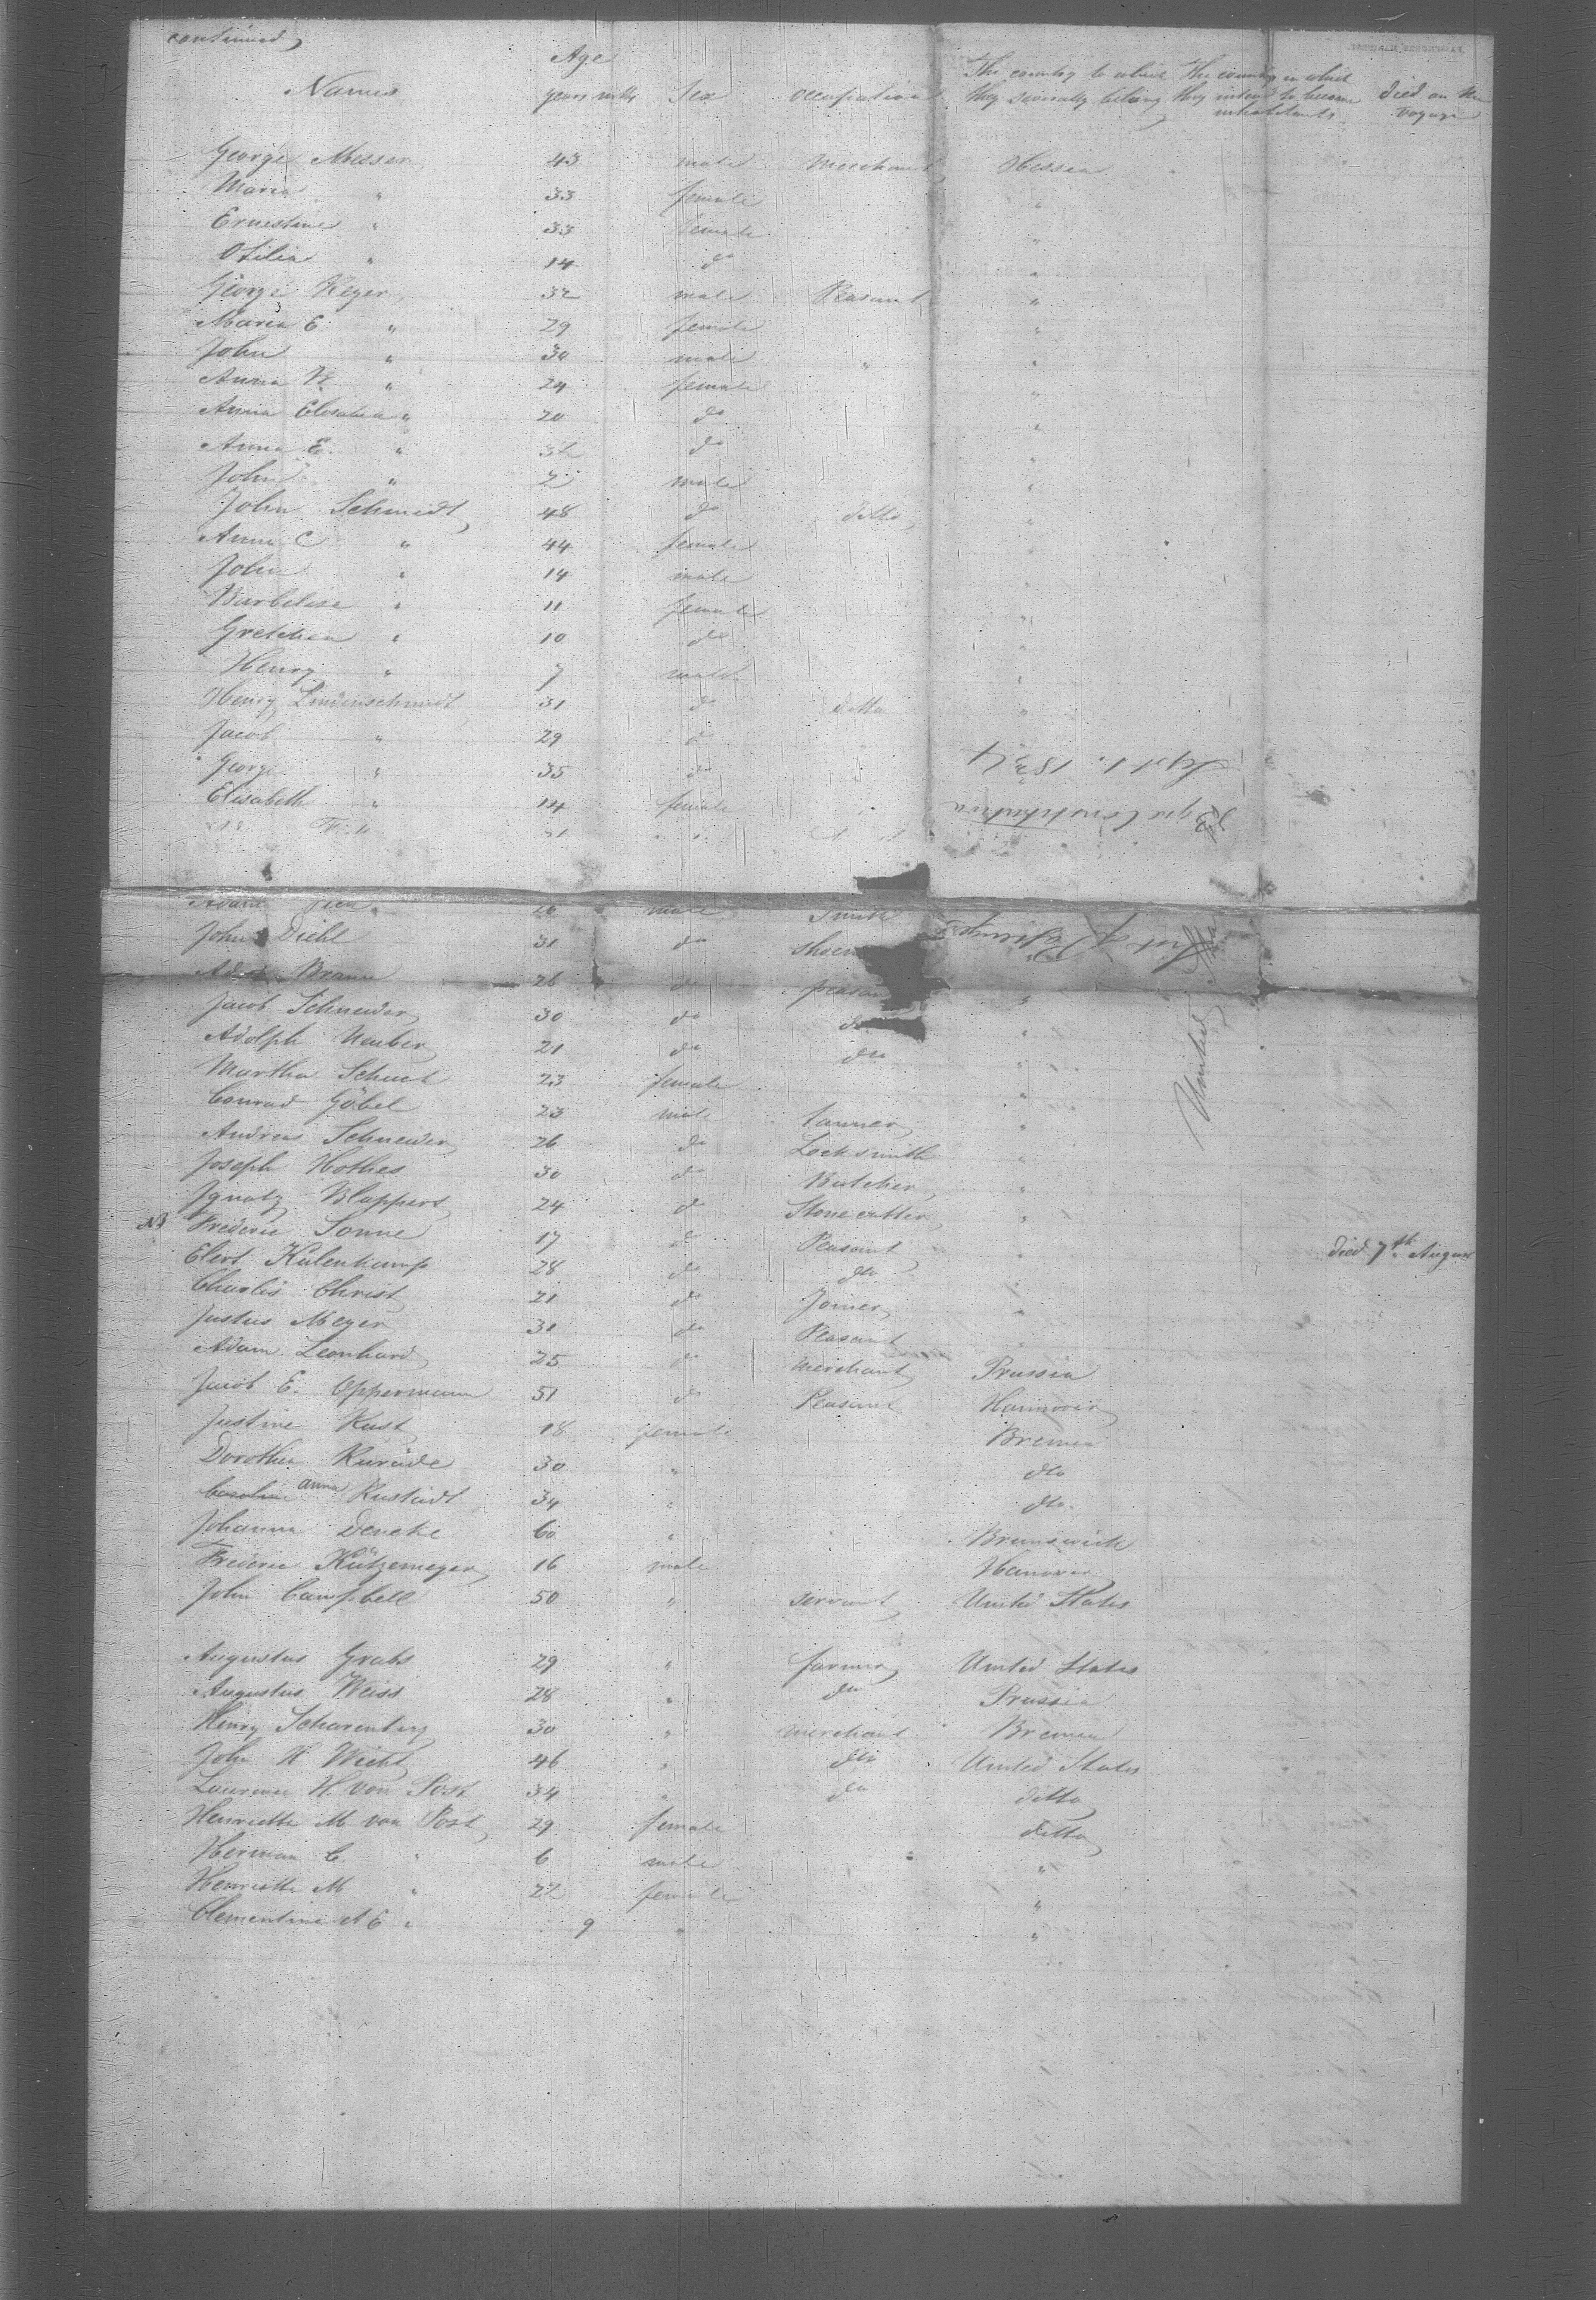 continued
Age
Names years mths Sex occupation The country to which they severally belong The country in which they intend to become inhabitants Died on the voyage
George Messer 43 male Merchant Hessen
Maria " 33 female "
Ernestine " 33 female "
Otilia " 14 do "
George Heger 32 male Peasant "
Maria E. " 29 female "
John " 30 male " "
Anna K. " 24 female "
Anna Elisabea " 20 do "
Anna E. " 32 do "
John " 2 male "
John Schmidt 48 do ditto "
Anna C " 44 female "
John " 14 male "
Barbelise " 11 female "
Gretchen " 10 do "
Henry " 7 male "
Henry Lindenschmidt 31 do ditto "
Jacob " 29 do " "
George " 35 do "
Elisabeth " 14 female "
Sept 1. 1834
Brig Constitution
Adam 26 male Smith
John Diehl 31 do
List of Passengers
Braun 26 do
Jacob Schneider 30 do do "
Adolph Neuber 21 do do "
Martha Schuct 23 female "
United
Conrad Göbel 23 male tanner "
Andreas Schneider 26 do Locksmith "
Joseph Hothes 30 do Butcher "
Ignatz Klappert 24 do Stone cutter "
NB Frederic Sonne 17 do Peasant " died 7th August
Elert Kulenkamp 28 do do "
Charles Christ 21 do Joiner "
Justus Meyer 31 do Peasant "
Adam Leonhard 25 do merchant Prussia
Jacob E. Oppermann 51 do Peasant Hannover
Justine Kust 18 female Bremen
Dorothea Kurude 30 " dto
Caroline anna Rustadt 34 " dto.
Johanna Deneke 60 " Brunswick
Frederic Kützemeyer 16 male Hanover
John Campbell 50 " servant United States
Augustus Grabs 29 " farmer United States
Augustus Weiss 28 " do Prussia
Henry Scharenberg 30 " merchant Bremen
John H Wicht 46 " do United States
Laurence H. von Post 34 " do ditto
Henriette M von Post 29 female ditto
Herman C. " 6 male "
Henriette M " 2½ female "
Clementine A E " 9 " "